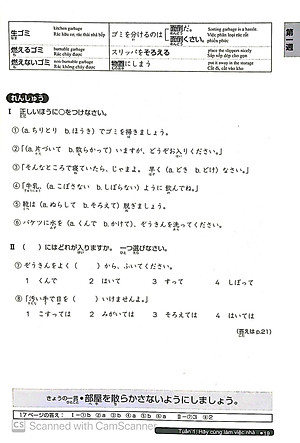 生ゴミ
kitchen garbage
Rác hữu cơ, rác thải nhà bếp
ゴミを分けるのは
面倒だ。
面倒くさい。
Sorting garbage is a hassle.
Việc phân loại rác rất
phiền phức
燃えるゴミ
burnable garbage
Rác cháy được
スリッパをそろえる
place the slippers nicely
Sắp xếp dép ngay ngắn
燃えないゴミ
non-burnable garbage
Rác không cháy được
物置にしまう
put it away in the storage
Cất đi, cất vào kho
第一週
れんしゅう
I 正しいほうに○をつけなさい。
①(a. ちりとり b. ほうき)でゴミを掃きましょう。
②「(a. 片づいて b. 散らかって)いますが、どうぞお入りください。」
③「そんなところで寝ていたら、じゃまよ。早く(a. どき b. どけ)なさい。」
④「牛乳、(a. こぼさない b. しばらない)ように飲んでね。」
⑤ 靴は(a. ぬらして b. そろえて)脱ぎましょう。
⑥ バケツに水を(a. くんで b. かけて)、ぞうきんを洗ってください。
II ( )にはどれが入りますか。一つ選びなさい。
⑦ ぞうきんをよく( )から、ふいてください。
1 くんで 2 はいて 3 すって 4 しぼって
⑧「汚い手で目を( )いけませんよ。」
1 こすっては 2 みがいては 3 そろえては 4 はいては
(答えは p.21)
きょうの一言 ・部屋を散らかさないようにしましょう。
Tuần 1: Hãy cùng làm việc nhà ・19
17ページの答え: I-①b ②a ③a ④a ⑤b ⑥a II-⑦3 ⑧2
CS Scanned with CamScanner